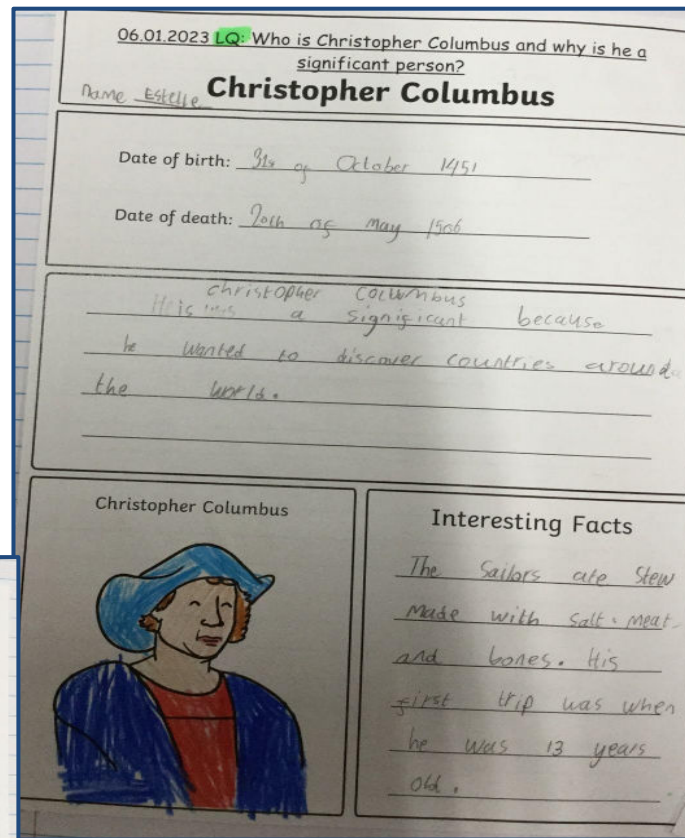 06.01.2023 LQ: Who is Christopher Columbus and why is he a
significant person?
Name Estelle
Christopher Columbus
Date of birth: 31st of October 1451
Date of death: 20th of May 1506
christopher columbus
a significant because
he wanted to discover countries around
the world.
Christopher Columbus
Interesting Facts
The Sailors ate Stew
made with salt. meat
and bones. His
first trip was when
he was 13 years
old.